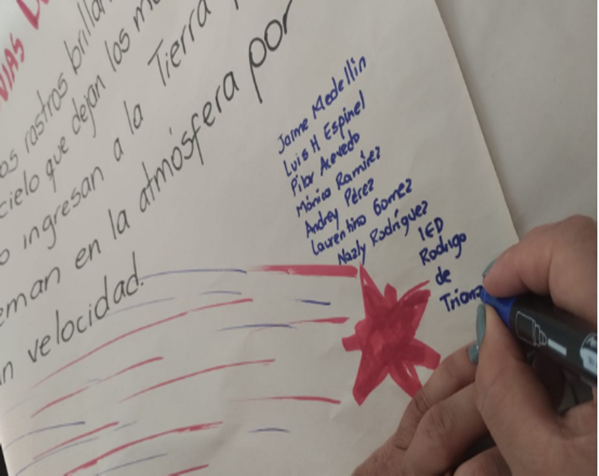 VIAS
os rastros brillan
cielo que dejan los m
o ingresan a la Tierra
eman en la atmósfera por
n velocidad.
Jaime Medellin
Luis H Espinel
Pilar Acevedo
Mónica Ramírez
Andrey Pérez
Laurentino Gomez
Nazly Rodríguez
IED
Rodrigo
de
Triana